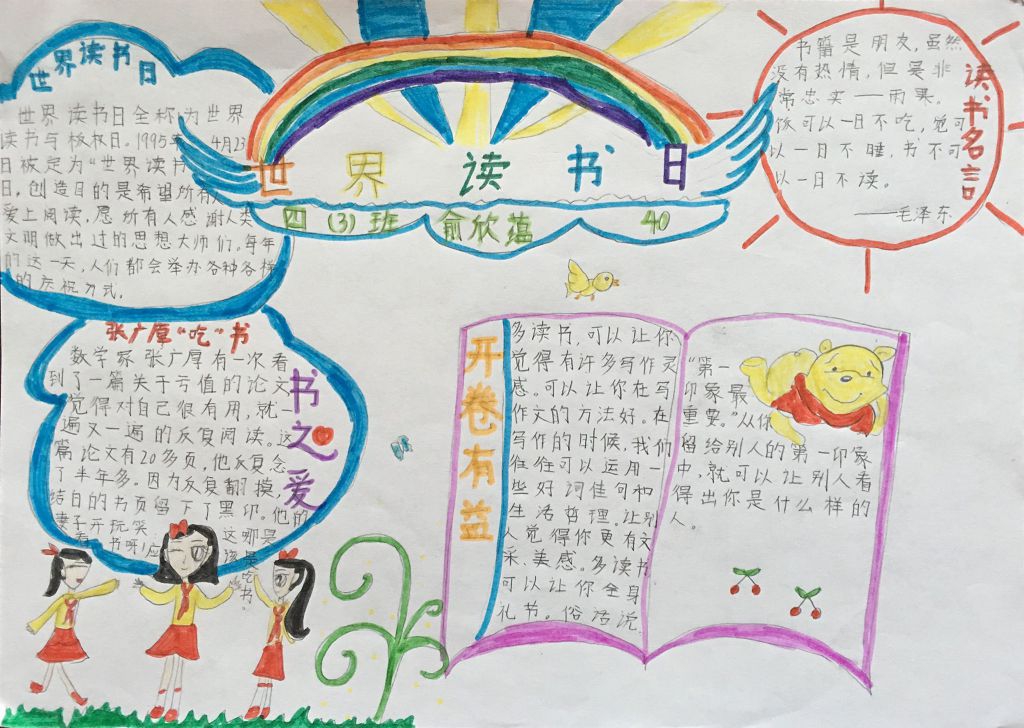 世界读书日
四(3)班 俞欣蕴 40
世界读书日
世界读书日全称为世界
读书与版权日。1995年4月23
日被定为“世界读书
日，创造目的是希望所有人
爱上阅读，愿所有人感谢人类
文明做出过的思想大师们。每年
的这一天，人们都会举办各种各样
的庆祝方式。
读书名言
书籍是朋友，虽然
没有热情，但是非
常忠实——雨果。
饭可以一日不吃，觉可
以一日不睡，书不可
以一日不读。
——毛泽东
张广厚“吃”书
书之爱
数学家张广厚有一次看
到了一篇关于亏值的论文
觉得对自己很有用，就一
遍又一遍的反复阅读。这
篇论文有20多页，他反复念
了半年多。因为反复翻摸，
结白的书页留下了黑印。他的
妻子开玩笑
这哪是
看书呀！应
该是吃书。
开卷有益
多读书，可以让你
觉得有许多写作灵
感。可以让你在写
作文的方法好。在
写作的时候，我们
往往可以运用一
些好词佳句和
生活哲理。让别
人觉得你更有文
采、美感。多读书
可以让你全身
礼节。俗话说
“第一
印象最
重要。”从你
留给别人的第一印象
中，就可以让别人看
得出你是什么样的
人。